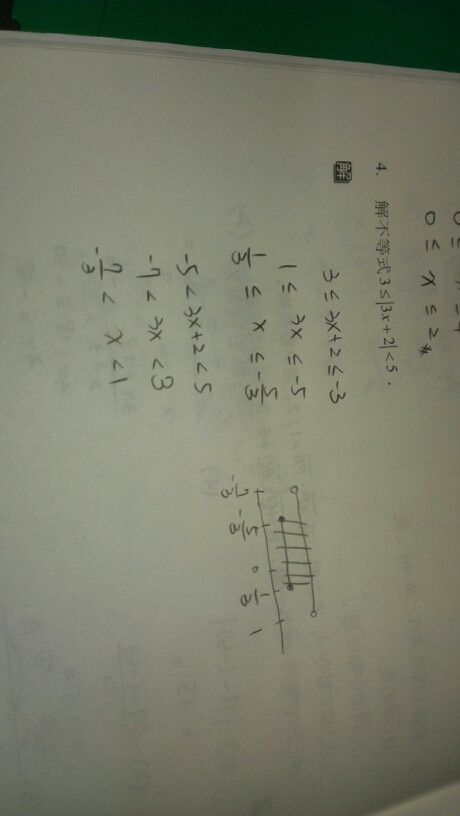 0 ≤ x ≤ 2 *
4. 解不等式 3 ≤ |3x + 2| < 5 .
解
3 ≤ 3x+2 ≤ -3
1 ≤ 3x ≤ -5
1/3 ≤ x ≤ -5/3
-5 < 3x+2 < 5
-7 < 3x < 3
-7/3 < x < 1
-7/3 -5/3 0 1/3 1